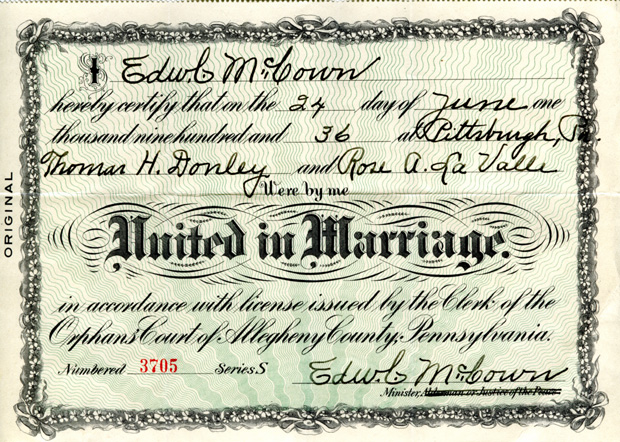 I Edw. C. McCown
hereby certify that on the 24 day of June one
thousand nine hundred and 36 at Pittsburgh, Pa.
Thomas H. Donley and Rose A. La Valle
Were by me
United in Marriage.
in accordance with license issued by the Clerk of the
Orphans' Court of Allegheny County, Pennsylvania.
Numbered 3705 Series S Edw. C. McCown
Minister, Alderman or Justice of the Peace
ORIGINAL